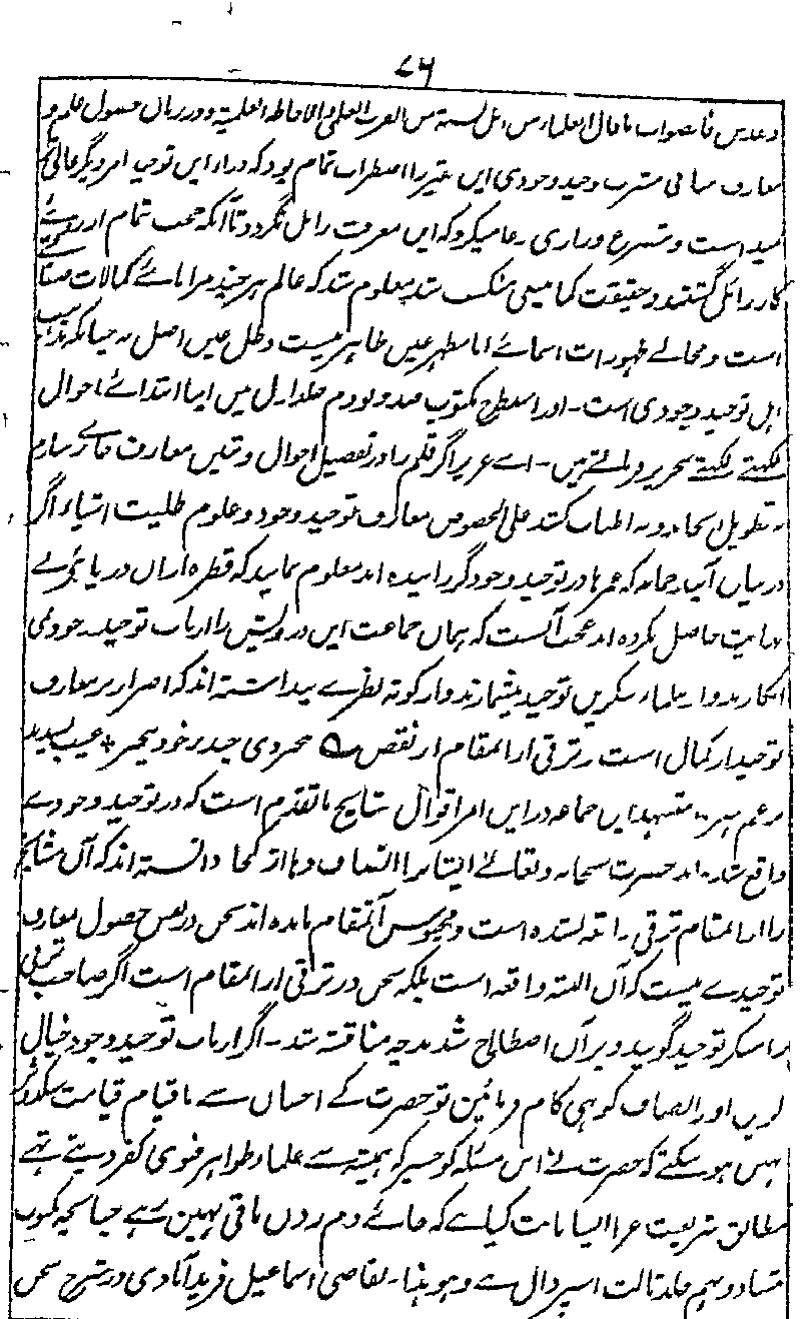 ۷۶
فالصواب ما قال العلماء من اهل السنة من القرب العلمی والاحاطة العلمیة ودر زمان حصول علوم و
معارف منافی مشرب وحید وجودی این فقیر را اضطراب تمام بود که وراء این توحید امر دیگر عالی
است و تضرع وزاری دعا میکرد که این معرفت زائل نگردد تا آنکه حجب تمام از روئے
کار زائل گشتند و حقیقت کما ینبغی منکشف شد معلوم شد که عالم هر چند مرایائے کمالات
است و مجالئے ظهورات اسمائے اما مظهر عین ظاهر نیست و ظل عین اصل نه چنانکه مذهب
اهل توحید وجودی است - اور اسیطرح مکتوب صد و نودم جلد اول میں اپنا ابتدائے احوال
لکهتے لکهتے تحریر فرماتے ہیں - اے عزیز اگر قلم را در تفصیل احوال و تبیین معارف جاری سازم
به تطویل انجامد و به اطناب کشد علی الخصوص معارف توحید وجود و علوم ظلیت اشیاء اگر
در بیان آید جماعه که عمرها در توحید وجود گذرانیده اند معلوم نمایند که قطره ازان دریا بے
نهایت حاصل نکرده اند عجب آنست که همان جماعت این درویش را ارباب توحید وجودی
انکارند و از علماء منکرین توحید میشمارند و از کوته نظرے پنداشته اند که اصرار بر معارف
توحید از کمال است و ترقی ازالمقام از نقص ؎ محروی چند ز خود بیخبر * عیب پسندند
برعم هنر متشبه این جماعه در این امر اقوال مشایخ ماتقدم است که در توحید وجودے
واقع شده اند حضرت سبحانه وتعالے ایشانرا انصاف دهاد از کجا دانسته اند که آن مشایخ
را ازان مقام ترقی واقع نشده است و محبوس آنمقام مانده اند سخن در نفس حصول معارف
توحیدے نیست که آن البته واقعه است بلکه سخن در ترقی ازان مقام است اگر صاحب ترقی
را منکر توحید گویند و بر آن اصطلاح شدند چه مناقشه شد - اگر ارباب توحید وجود خیال
کریں اور انصاف کو ہی کام فرمائیں تو حضرت کے احسان سے تا قیام قیامت سبکدوش
نہیں ہو سکتے کہ حضرت نے اس مسئلہ کو جسپر کہ ہمیشہ سے علماء ظواہر فتوی کفر دیتے تہے
مطابق شریعت غرا ایسا ثابت کیا ہے کہ جائے دم زدن باقی نہین رہے چنانچہ مکتوب
ہشتاد و نہم جلد ثالث اسپر دال ہے وہو ہذا - بقاضی اسماعیل فریدآبادی در شرح سخن